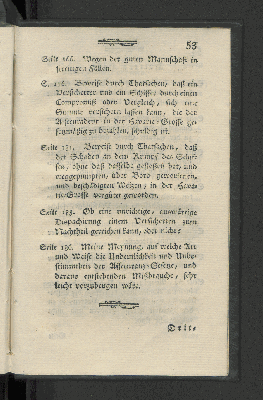 53
Seite 166. Wegen der guten Mannschaft in
streitigen Fällen.
Beweise durch Thatsachen, daß ein
Versicherter und ein Schiffer, durch einen
Compromiß oder Vergleich, sich eine
Summe versichern lassen kann, die der
Assecuradeur in der Havarie-Grosse
zu bezahlen, schuldig ist.
Seite 181. Beweise durch Thatsachen, daß
der Schaden an dem Rumpf des Schif-
fes, ohne daß dasselbe gestoßen hat, und
weggepumpten, über Bord geworfenen,
und beschädigten Weizen, in der Hava-
rie-Grosse vergütet geworden.
Seite 183. Ob eine unrichtige, auswärtige
Dispachirung einem Versicherten zum
Nachtheil gereichen kann, oder nicht?
Seite 186. Meine Meynung, auf welche Art
und Weise die Undeutlichkeit und Unbe-
stimmtheit der Assecuranz-Scheine, und
daraus entstehenden Mißbräuche, sehr
leicht vorzubeugen wäre.
Dritte